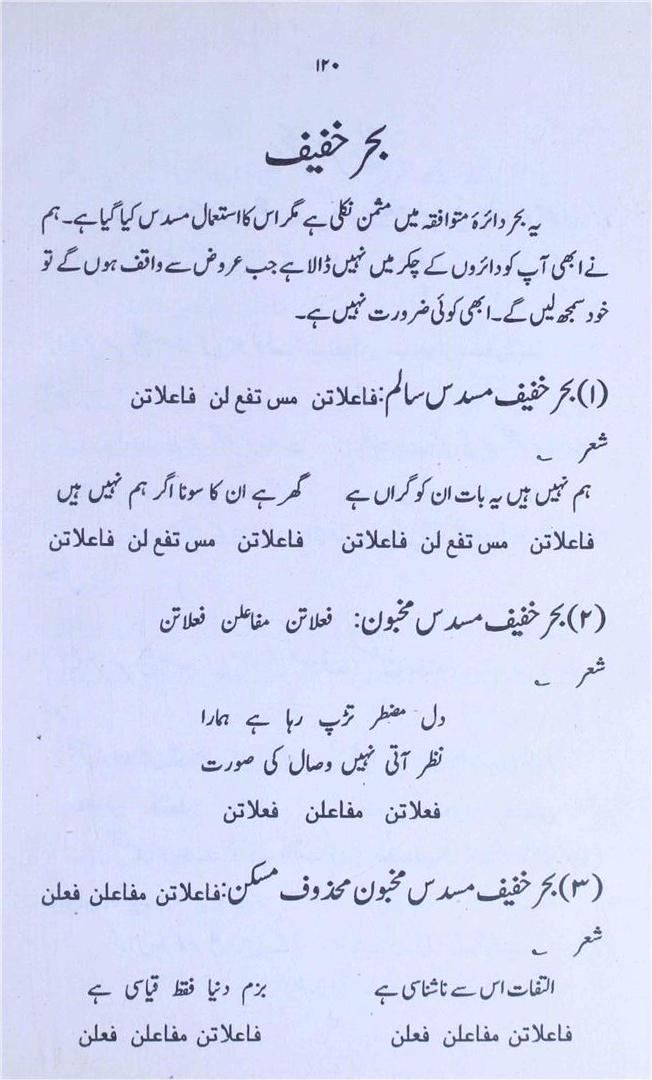 ۱۲۰
بحر خفیف
یہ بحر دائرۂ متوافقہ میں مثمن نکلی ہے مگر اس کا استعمال مسدس کیا گیا ہے۔ ہم
نے ابھی آپ کو دائروں کے چکر میں نہیں ڈالا ہے جب عروض سے واقف ہوں گے تو
خود سمجھ لیں گے۔ ابھی کوئی ضرورت نہیں ہے۔
(۱) بحر خفیف مسدس سالم: فاعلاتن مس تفع لن فاعلاتن
شعر ؎
ہم نہیں ہیں یہ بات ان کو گراں ہے گھر ہے ان کا سونا اگر ہم نہیں ہیں
فاعلاتن مس تفع لن فاعلاتن فاعلاتن مس تفع لن فاعلاتن
(۲) بحر خفیف مسدس مخبون: فعلاتن مفاعلن فعلاتن
شعر ؎
دل مضطر تڑپ رہا ہے ہمارا
نظر آتی نہیں وصال کی صورت
فعلاتن مفاعلن فعلاتن
(۳) بحر خفیف مسدس مخبون محذوف مسکن: فاعلاتن مفاعلن فعلن
شعر ؎
التفات اس سے ناشناسی ہے بزم دنیا فقط قیاسی ہے
فاعلاتن مفاعلن فعلن فاعلاتن مفاعلن فعلن